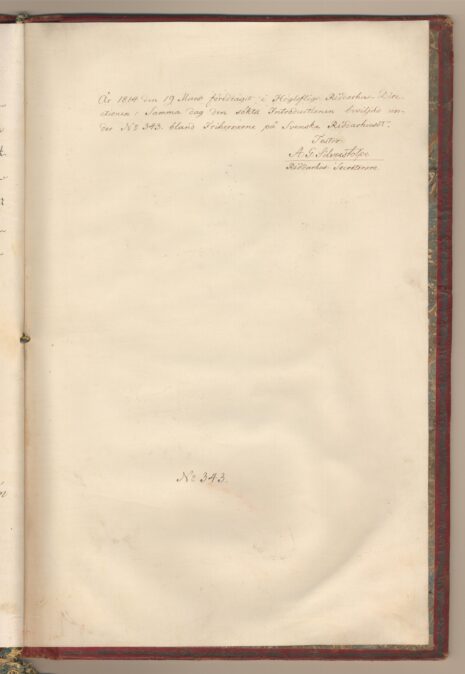 År 1814 den 19 Mars föredragit i Höglofligr. Riddarhus-Dire-
ctionen: Samma dag den sökta Introductionen beviljds un-
der No 343. bland Friherrarne på Svenska Riddarhuset.
Testor:
A. G. Silverstolpe
Riddarhus-Secreterare
No 343.